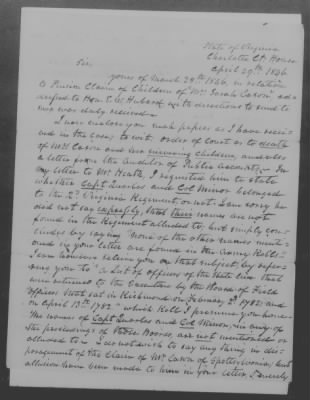 State of Virginia
Charlotte Ct. House
April 29th 1846
Sir
yours of March 24th 1846, in relation
to Pension Claim of Children of Mrs Sarah Cason ad-
dressed to Hon. E. W. Hubard with directions to send to
me was duly received
I now enclose you such papers as I have receiv-
ed in the case, to wit order of court as to death
of Mrs Cason and her surviving children, and also
a letter from the Auditor of Public accounts. In
my letter to Mr Heath, I requested him to state
whether Capt Quarles and Col Minor belonged
to the 2d Virginia Regiment or not. I am sorry he
did not say expressly, that their names are not
found in the Regiment alluded to, but simply con-
cludes by saying "None of the other names menti-
oned in your letter are found in the Army Rolls"
I am however relieved on that subject, by refer-
ing you to a list of officers of the State line that
were returned to the Executive by the Board of Field
officers that sat in Richmond on February 2d 1782 and
on April 13th 1782 which Roll I presume you have.
The names of Capt Quarles and Col Minor, in any of
the proceedings of those Boards are not mentioned or
alluded to. I do not wish to say any thing in dis-
paragement of the Claim of Mr Cason of Spotsylvania, but
allusion having been made to him in your letter, I merely